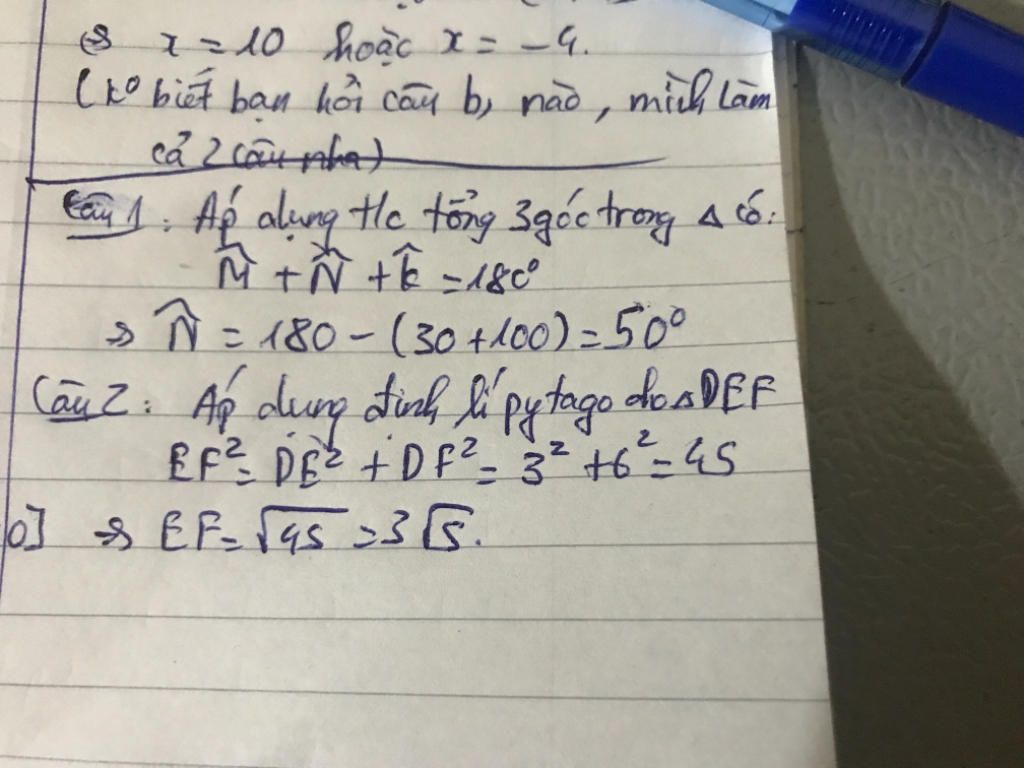 ⇔ x = 10 hoặc x = -4.
(k⁰ biết bạn hỏi câu b, nào, mình làm
cả 2 câu nha)
Câu 1: Áp dụng t/c tổng 3 góc trong Δ có:
M̂ + N̂ + K̂ = 180⁰
⇒ N̂ = 180 - (30 + 100) = 50⁰
Câu 2: Áp dụng định lí pytago cho Δ DEF
EF² = DE² + DF² = 3² + 6² = 45
0] ⇒ EF = √45 = 3√5.